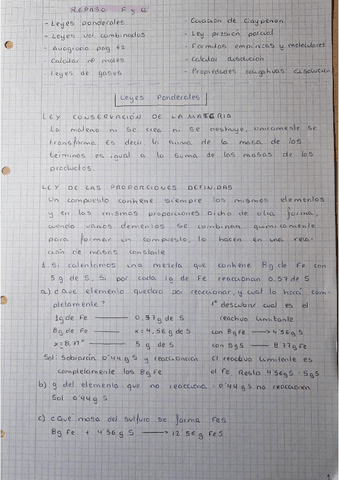 REPASO F y Q
- Leyes ponderales
- Leyes vol. combinados
- Avogadro pag 45
- Calcular nº moles
- Leyes de gases
- Ecuación de Clapeyron
- Ley presión parcial
- Formulas empíricas y moleculares
- Calcular disolución
- Propiedades coligativas disolución
Leyes Ponderales
LEY CONSERVACIÓN DE LA MATERIA
La materia ni se crea ni se destruye, únicamente se
transforma es decir la suma de la masa de los
términos es igual a la suma de las masas de los
productos.
LEY DE LAS PROPORCIONES DEFINIDAS
Un compuesto contiene siempre los mismos elementos
y en las mismas proporciones dicho de otra forma,
cuando varios elementos se combinan químicamente
para formar un compuesto, lo hacen en una rela-
ción de masas constante
1. Si calentamos una mezcla que contiene 8g de Fe con
5g de S. Si por cada 1g de Fe reaccionan 0.57 de S
a) ¿Que elemento quedara sin reaccionar, y cual lo hará com-
pletamente?
1º descubrir cual es el
reactivo limitante
1g de Fe → 0,57g de S
8g de Fe → x = 4,56g de S
x = 8.77 → 5 g de S
con 8g Fe → 4'56g S
con 5g S → 8.77g Fe
Sol: Sobrarán 0'44g S y reaccionan
completamente los 8g Fe
El reactivo limitante es
el Fe. Resto 4'56g S - 5g S
b) g del elemento que no reacciona = 0'44g S no reaccionan
Sol 0'44g S
c) ¿Que masa del sulfuro se forma FeS
8g Fe + 4'56g S → 12'56g FeS